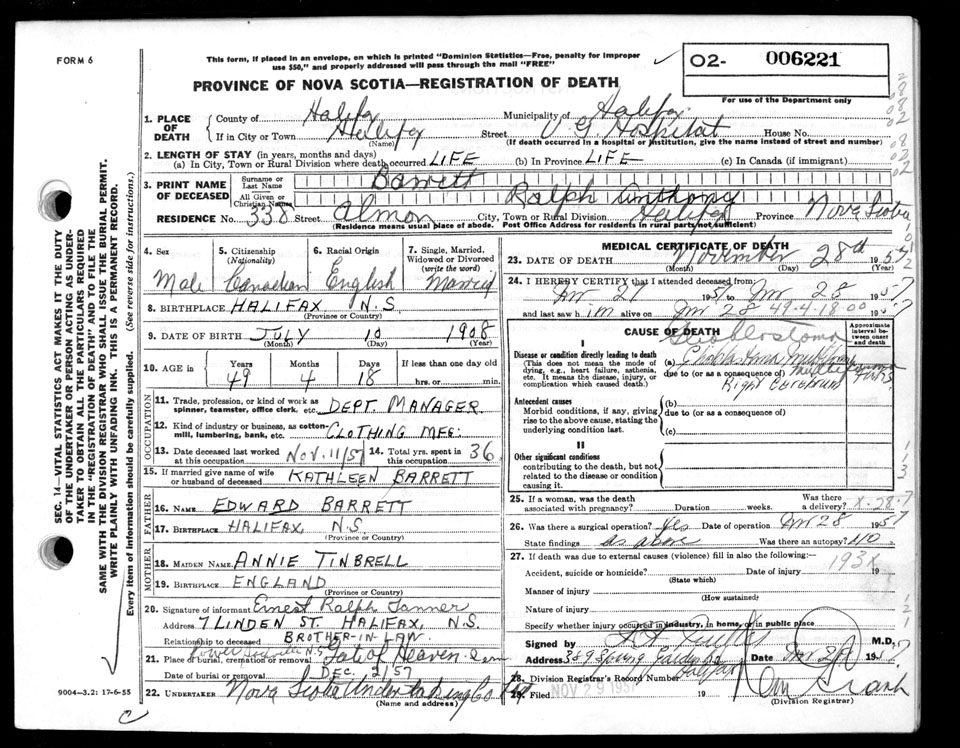 FORM 6
This form, if placed in an envelope, on which is printed "Dominion Statistics—Free, penalty for improper
use $50," and properly addressed will pass through the mail "FREE"
O2- 006221
PROVINCE OF NOVA SCOTIA—REGISTRATION OF DEATH
For use of the Department only
1. PLACE OF DEATH
County of Halifax Municipality of Halifax
If in City or Town Halifax Street V. G. Hospital House No.
(Name) (If death occurred in a hospital or institution, give the name instead of street and number)
2. LENGTH OF STAY (in years, months and days)
(a) In City, Town or Rural Division where death occurred LIFE (b) In Province LIFE (c) In Canada (if immigrant)
3. PRINT NAME OF DECEASED
Surname or Last Name Barrett
All Given or Christian Names Ralph Anthony
RESIDENCE No. 338 Street Almon City, Town or Rural Division Halifax Province Nova Scotia
(Residence means usual place of abode. Post Office Address for residents in rural parts not sufficient)
4. Sex
Male
5. Citizenship (Nationality)
Canadian
6. Racial Origin
English
7. Single, Married, Widowed or Divorced (write the word)
Married
8. BIRTHPLACE HALIFAX N.S.
(Province or Country)
9. DATE OF BIRTH JULY 10 1908
(Month) (Day) (Year)
10. AGE in Years Months Days If less than one day old
49 4 18 hrs. or min.
OCCUPATION
11. Trade, profession, or kind of work as
spinner, teamster, office clerk, etc. DEPT. MANAGER
12. Kind of industry or business, as cotton-
mill, lumbering, bank, etc. CLOTHING MFG:
13. Date deceased last worked at this occupation NOV. 11/57 14. Total yrs. spent in this occupation 36
15. If married give name of wife
or husband of deceased KATHLEEN BARRETT
FATHER
16. NAME EDWARD BARRETT
17. BIRTHPLACE HALIFAX, N.S.
(Province or Country)
MOTHER
18. MAIDEN NAME ANNIE TINBRELL
19. BIRTHPLACE ENGLAND
(Province or Country)
20. Signature of informant Ernest Ralph Tanner
Address 7 LINDEN ST. HALIFAX, N.S.
Relationship to deceased BROTHER-IN-LAW.
Lower Sackville N.S
21. Place of burial, cremation or removal Gate of Heaven Cem
DEC. 2/57
22. UNDERTAKER Nova Scotia Undertaking Co
(Name and address)
MEDICAL CERTIFICATE OF DEATH
23. DATE OF DEATH November 28th 1957
(Month) (Day) (Year)
24. I HEREBY CERTIFY that I attended deceased from:
Nov 21 1957 to Nov 28 1957
and last saw him alive on Nov 28 1957
CAUSE OF DEATH
Approximate interval between onset and death
I
Disease or condition directly leading to death
(This does not mean the mode of
dying, e.g., heart failure, asthenia,
etc. It means the disease, injury, or
complication which caused death.)
(a)
due to (or as a consequence of)
Right Cerebrum
Antecedent causes
Morbid conditions, if any, giving
rise to the above cause, stating the
underlying condition last.
(b)
due to (or as a consequence of)
(c)
II
Other significant conditions
contributing to the death, but not
related to the disease or condition
causing it.
25. If a woman, was the death
associated with pregnancy? Duration weeks. Was there a delivery?
26. Was there a surgical operation? Yes Date of operation Nov 28 1957
State findings as above Was there an autopsy? NO
27. If death was due to external causes (violence) fill in also the following:—
Accident, suicide or homicide? Date of injury 19
(State which)
193X
Manner of injury
(How sustained)
Nature of injury
Specify whether injury occurred in industry, in home, or in public place
Signed by M.D.
Address 389 Spring Garden Rd Halifax Date Nov 29 1957
28. Division Registrar's Record Number
29. Filed NOV 29 1957 19
(Division Registrar)
SEC. 14—VITAL STATISTICS ACT MAKES IT THE DUTY
OF THE UNDERTAKER OR PERSON ACTING AS UNDER-
TAKER TO OBTAIN ALL THE PARTICULARS REQUIRED
IN THE "REGISTRATION OF DEATH" AND TO FILE THE
SAME WITH THE DIVISION REGISTRAR WHO SHALL ISSUE THE BURIAL PERMIT.
WRITE PLAINLY WITH UNFADING INK. THIS IS A PERMANENT RECORD.
Every item of information should be carefully supplied. (See reverse side for instructions.)
9004-3.2: 17-6-55